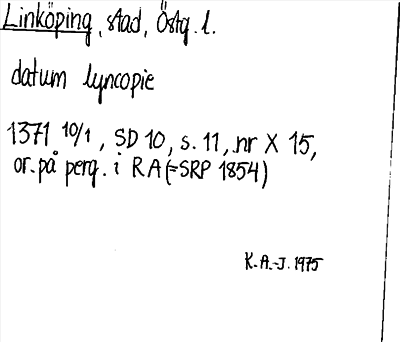 Linköping, stad, Östg. l.
datum lyncopie
1371 10/1, SD 10, s. 11, nr X 15,
or. på perg. i RA (=SRP 1854)
K.A-J. 1975